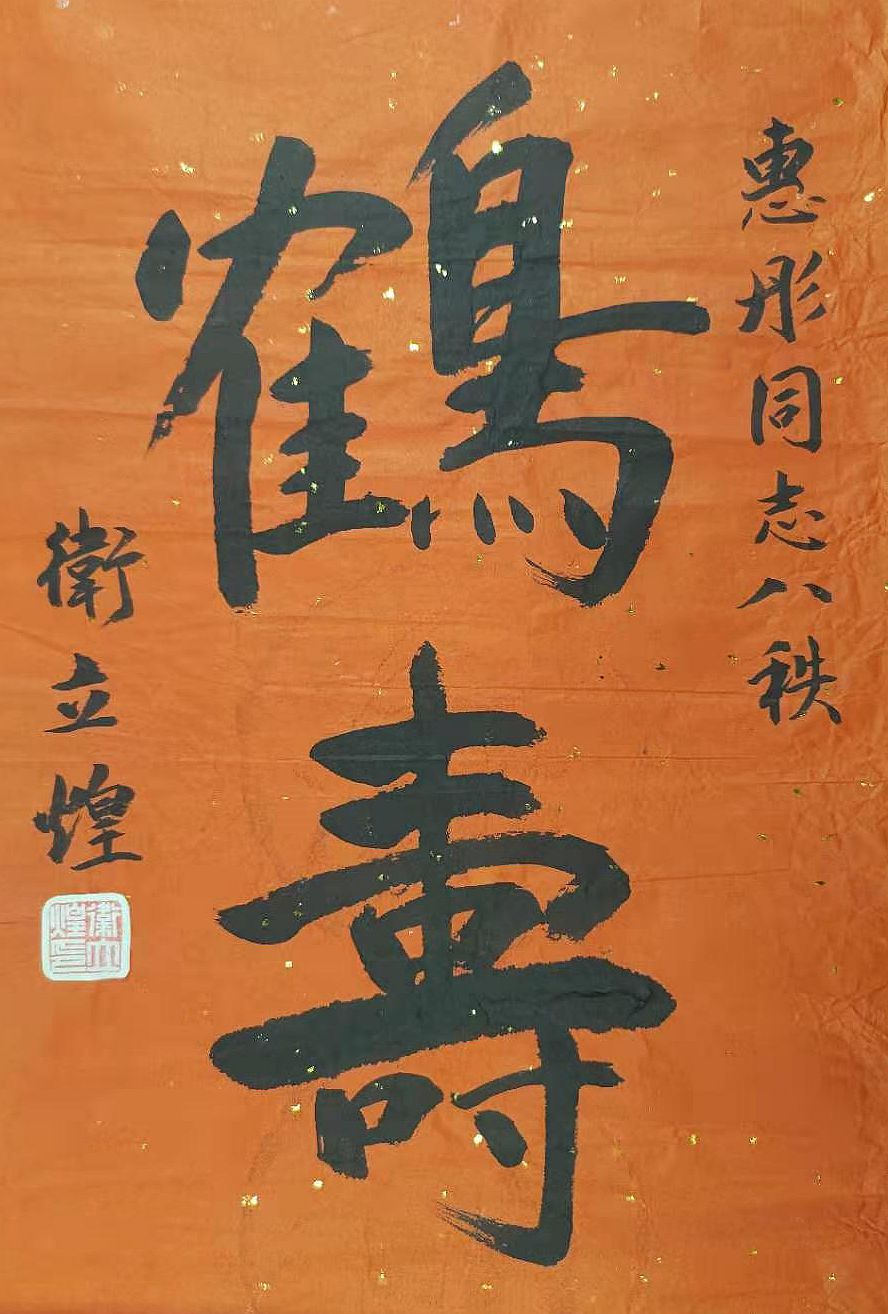 惠彤同志八秩
鶴壽
衛立煌
衛立煌印